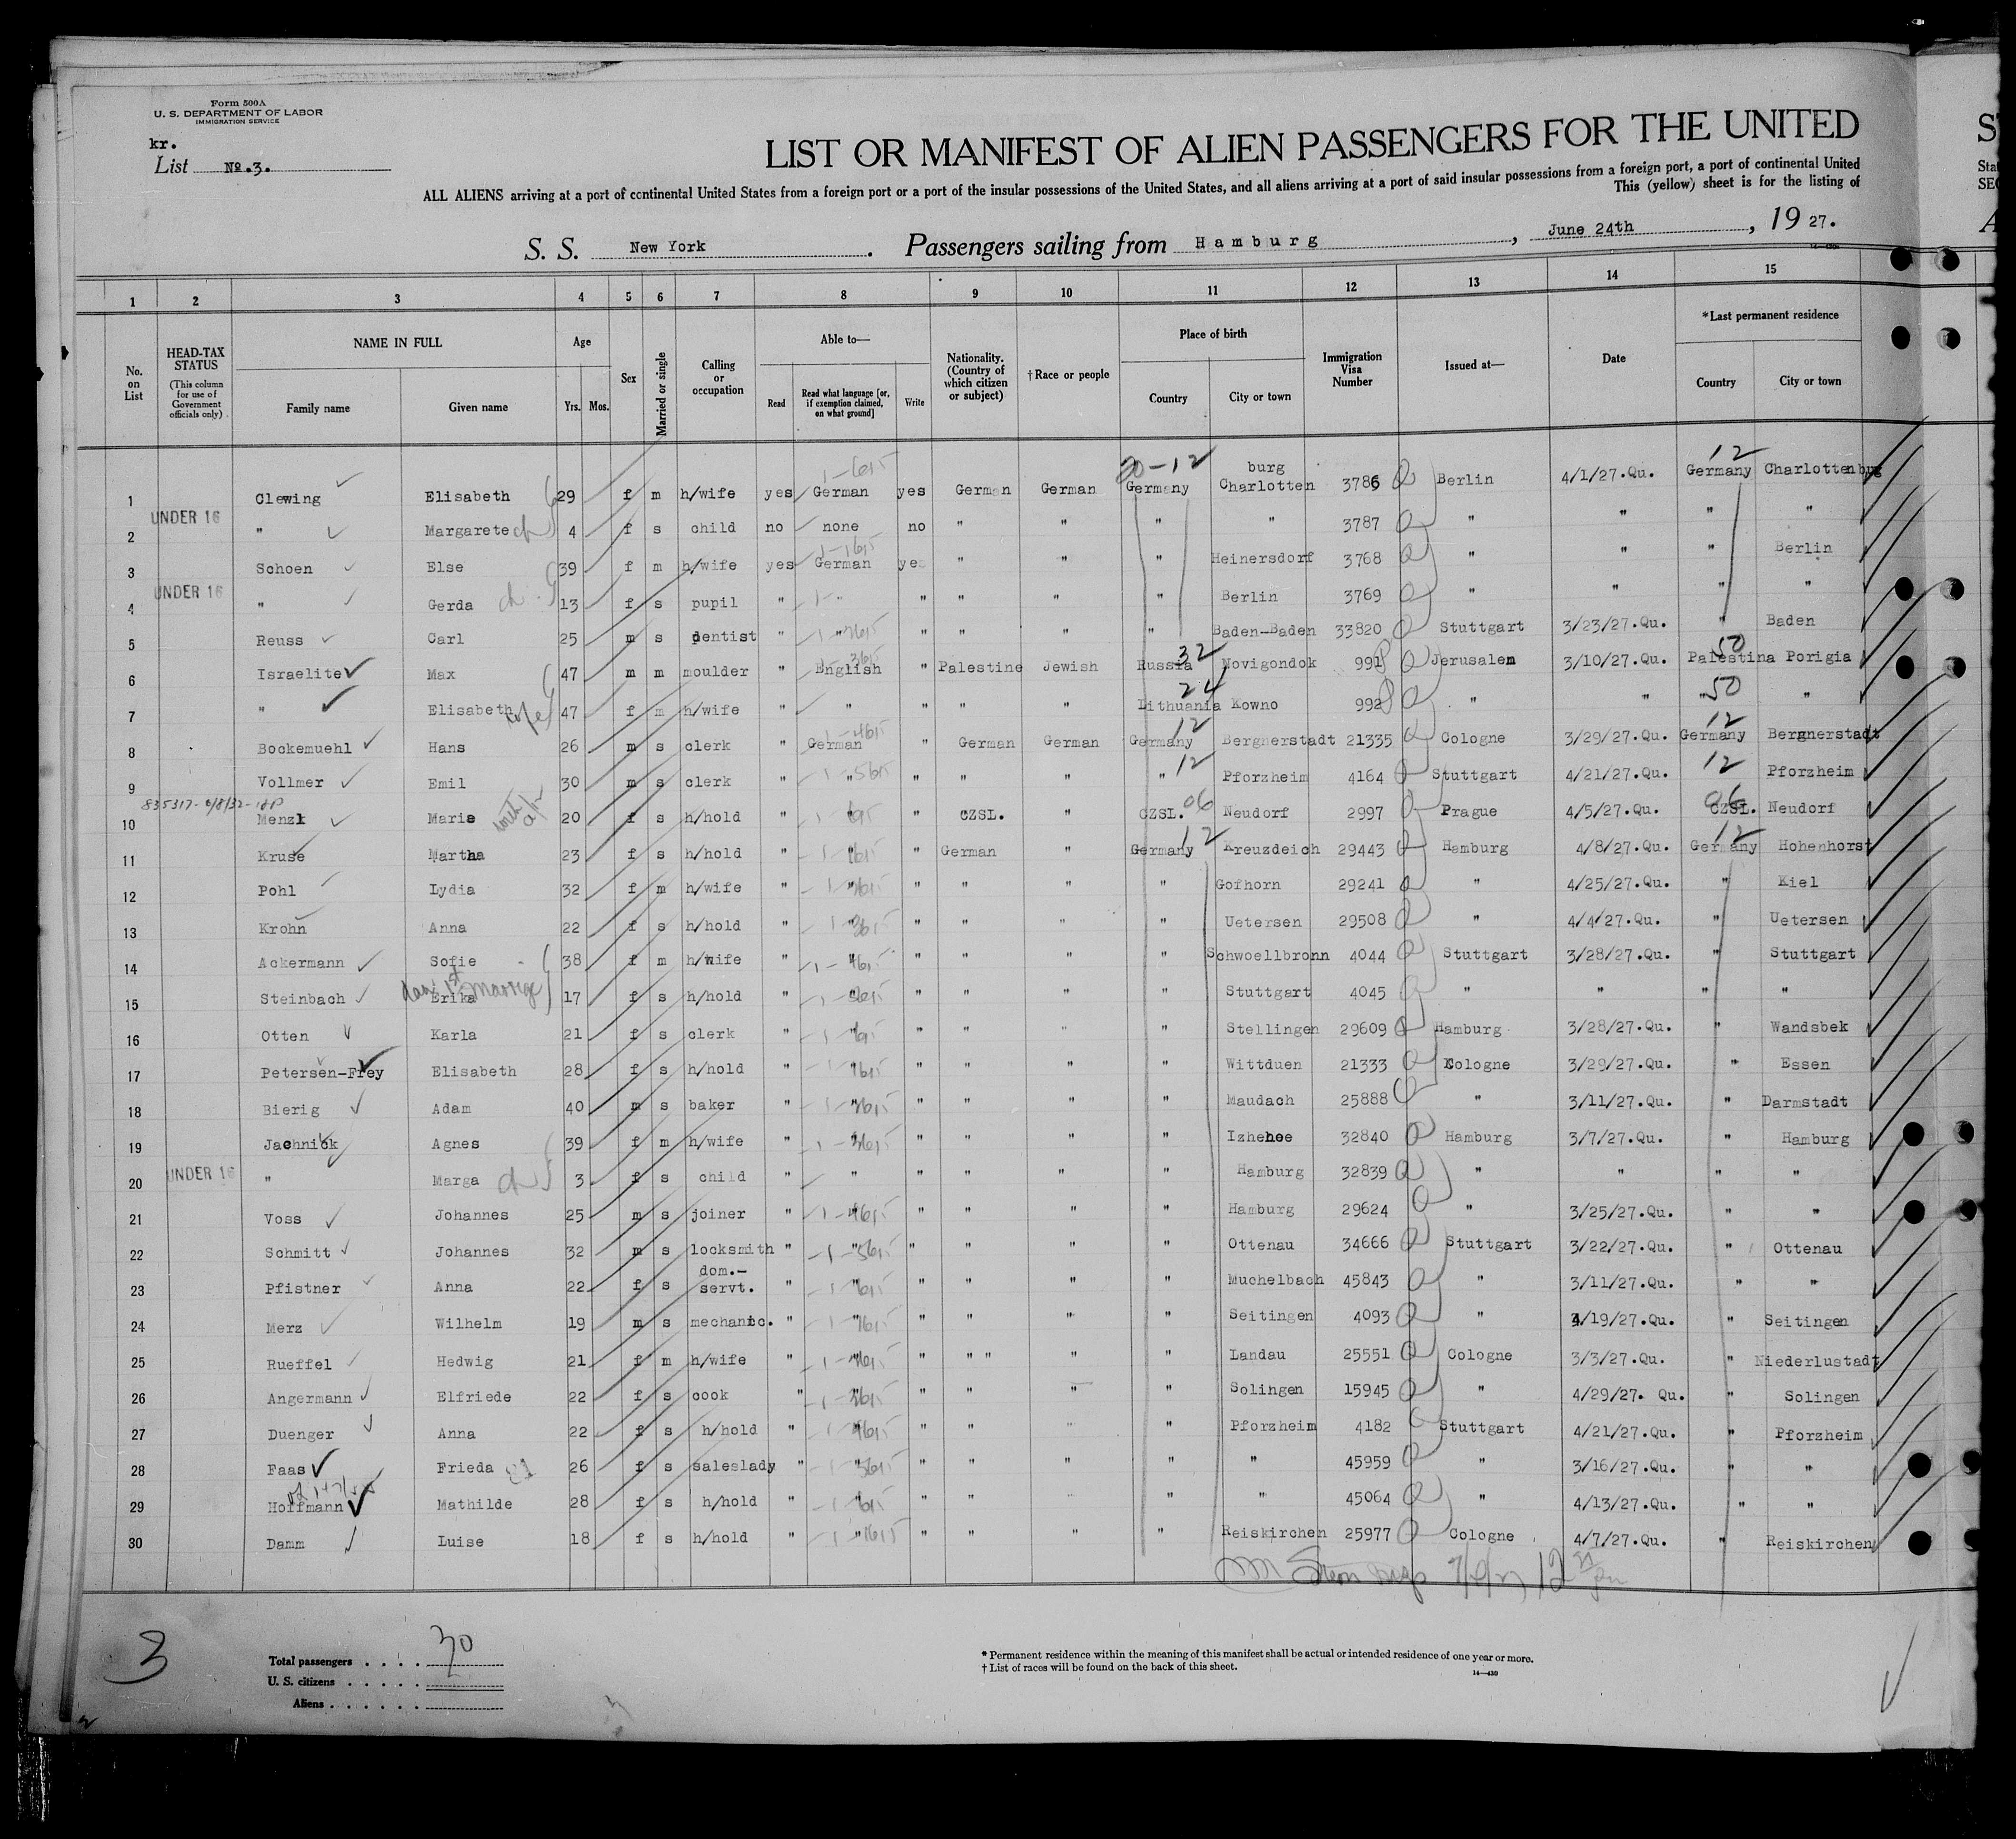 Form 500A
U. S. DEPARTMENT OF LABOR
IMMIGRATION SERVICE
kr.
List No. 3.
LIST OR MANIFEST OF ALIEN PASSENGERS FOR THE UNITED
ALL ALIENS arriving at a port of continental United States from a foreign port or a port of the insular possessions of the United States, and all aliens arriving at a port of said insular possessions from a foreign port, a port of continental United
This (yellow) sheet is for the listing of
S. S. New York. Passengers sailing from Hamburg, June 24th, 19 27.
1 2 3 4 5 6 7 8 9 10 11 12 13 14 15
No. on List
HEAD-TAX STATUS (This column for use of Government officials only)
NAME IN FULL Family name Given name
Age Yrs. Mos.
Sex
Married or single
Calling or occupation
Able to— Read Read what language [or, if exemption claimed, on what ground] Write
Nationality. (Country of which citizen or subject)
†Race or people
Place of birth Country City or town
Immigration Visa Number
Issued at—
Date
*Last permanent residence Country City or town
20-12 12
1 Clewing Elisabeth 29 f m h/wife yes German yes German German Germany Charlotten burg 3786 Berlin 4/1/27.Qu. Germany Charlottenburg
UNDER 16
2 " Margarete ch 4 f s child no none no " " " " 3787 " " " "
3 Schoen Else 39 f m h/wife yes German yes " " " Heinersdorf 3768 " " " Berlin
UNDER 16
4 " Gerda ch. 13 f s pupil " " " " " " Berlin 3769 " " " "
5 Reuss Carl 25 m s dentist " " " " " " Baden-Baden 33820 Stuttgart 3/23/27.Qu. " Baden
32 50
6 Israelite Max 47 m m moulder " English " Palestine Jewish Russia Novigondok 991 Jerusalem 3/10/27.Qu. Palestina Porigia
24 50
7 " Elisabeth wife 47 f m h/wife " " " " " Lithuania Kowno 992 " " " "
12 12
8 Bockemuehl Hans 26 m s clerk " German " German German Germany Bergnerstadt 21335 Cologne 3/29/27.Qu. Germany Bergnerstadt
9 Vollmer Emil 30 m s clerk " " " " " " 12 Pforzheim 4164 Stuttgart 4/21/27.Qu. 12 Pforzheim
10 Menzl Marie 20 f s h/hold " " " CZSL. " CZSL. 06 Neudorf 2997 Prague 4/5/27.Qu. 06 CZSL. Neudorf
12 12
11 Kruse Martha 23 f s h/hold " " " German " Germany Kreuzdeich 29443 Hamburg 4/8/27.Qu. Germany Hohenhorst
12 Pohl Lydia 32 f m h/wife " " " " " " Gofhorn 29241 " 4/25/27.Qu. " Kiel
13 Krohn Anna 22 f s h/hold " " " " " " Uetersen 29508 " 4/4/27.Qu. " Uetersen
14 Ackermann Sofie 38 f m h/wife " " " " " " Schwoellbronn 4044 Stuttgart 3/28/27.Qu. " Stuttgart
15 Steinbach Erika 17 f s h/hold " " " " " " Stuttgart 4045 " " " "
16 Otten Karla 21 f s clerk " " " " " " Stellingen 29609 Hamburg 3/28/27.Qu. " Wandsbek
17 Petersen-Frey Elisabeth 28 f s h/hold " " " " " " Wittduen 21333 Cologne 3/29/27.Qu. " Essen
18 Bierig Adam 40 m s baker " " " " " " Maudach 25888 " 3/11/27.Qu. " Darmstadt
19 Jachnick Agnes 39 f m h/wife " " " " " " Izhehoe 32840 Hamburg 3/7/27.Qu. " Hamburg
UNDER 16
20 " Marga ch 3 f s child " " " " " " Hamburg 32839 " " " "
21 Voss Johannes 25 m s joiner " " " " " " Hamburg 29624 " 3/25/27.Qu. " "
22 Schmitt Johannes 32 m s locksmith " " " " " " Ottenau 34666 Stuttgart 3/22/27.Qu. " Ottenau
23 Pfistner Anna 22 f s dom.- servt. " " " " " " Muchelbach 45843 " 3/11/27.Qu. " "
24 Merz Wilhelm 19 m s mechanic. " " " " " " Seitingen 4093 " 4/19/27.Qu. " Seitingen
25 Rueffel Hedwig 21 f m h/wife " " " " " " " Landau 25551 Cologne 3/3/27.Qu. " Niederlustadt
26 Angermann Elfriede 22 f s cook " " " " " " Solingen 15945 " 4/29/27. Qu. " Solingen
27 Duenger Anna 22 f s h/hold " " " " " " Pforzheim 4182 Stuttgart 4/21/27.Qu. " Pforzheim
28 Faas Frieda 26 f s saleslady " " " " " " " 45959 " 3/16/27.Qu. " "
29 Hoffmann Mathilde 28 f s h/hold " " " " " " " 45064 " 4/13/27.Qu. " "
30 Damm Luise 18 f s h/hold " " " " " " Reiskirchen 25977 Cologne 4/7/27.Qu. " Reiskirchen
3
Total passengers . . . . 30
U. S. citizens . . . . .
Aliens . . . . . .
* Permanent residence within the meaning of this manifest shall be actual or intended residence of one year or more.
† List of races will be found on the back of this sheet.
14—430